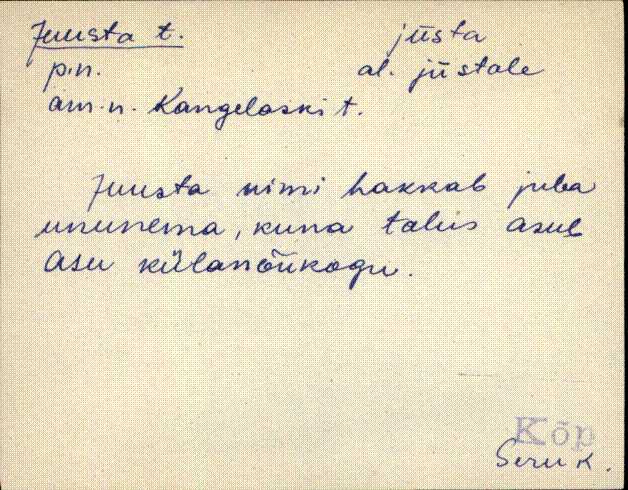 Juusta t. jüsta
p.n. al. jüstale
am.n. Kangelaski t.
Juusta nimi hakkab juba
ununema, kuna talus asub
Asu külanõukogu.
Kõp
Seru k.